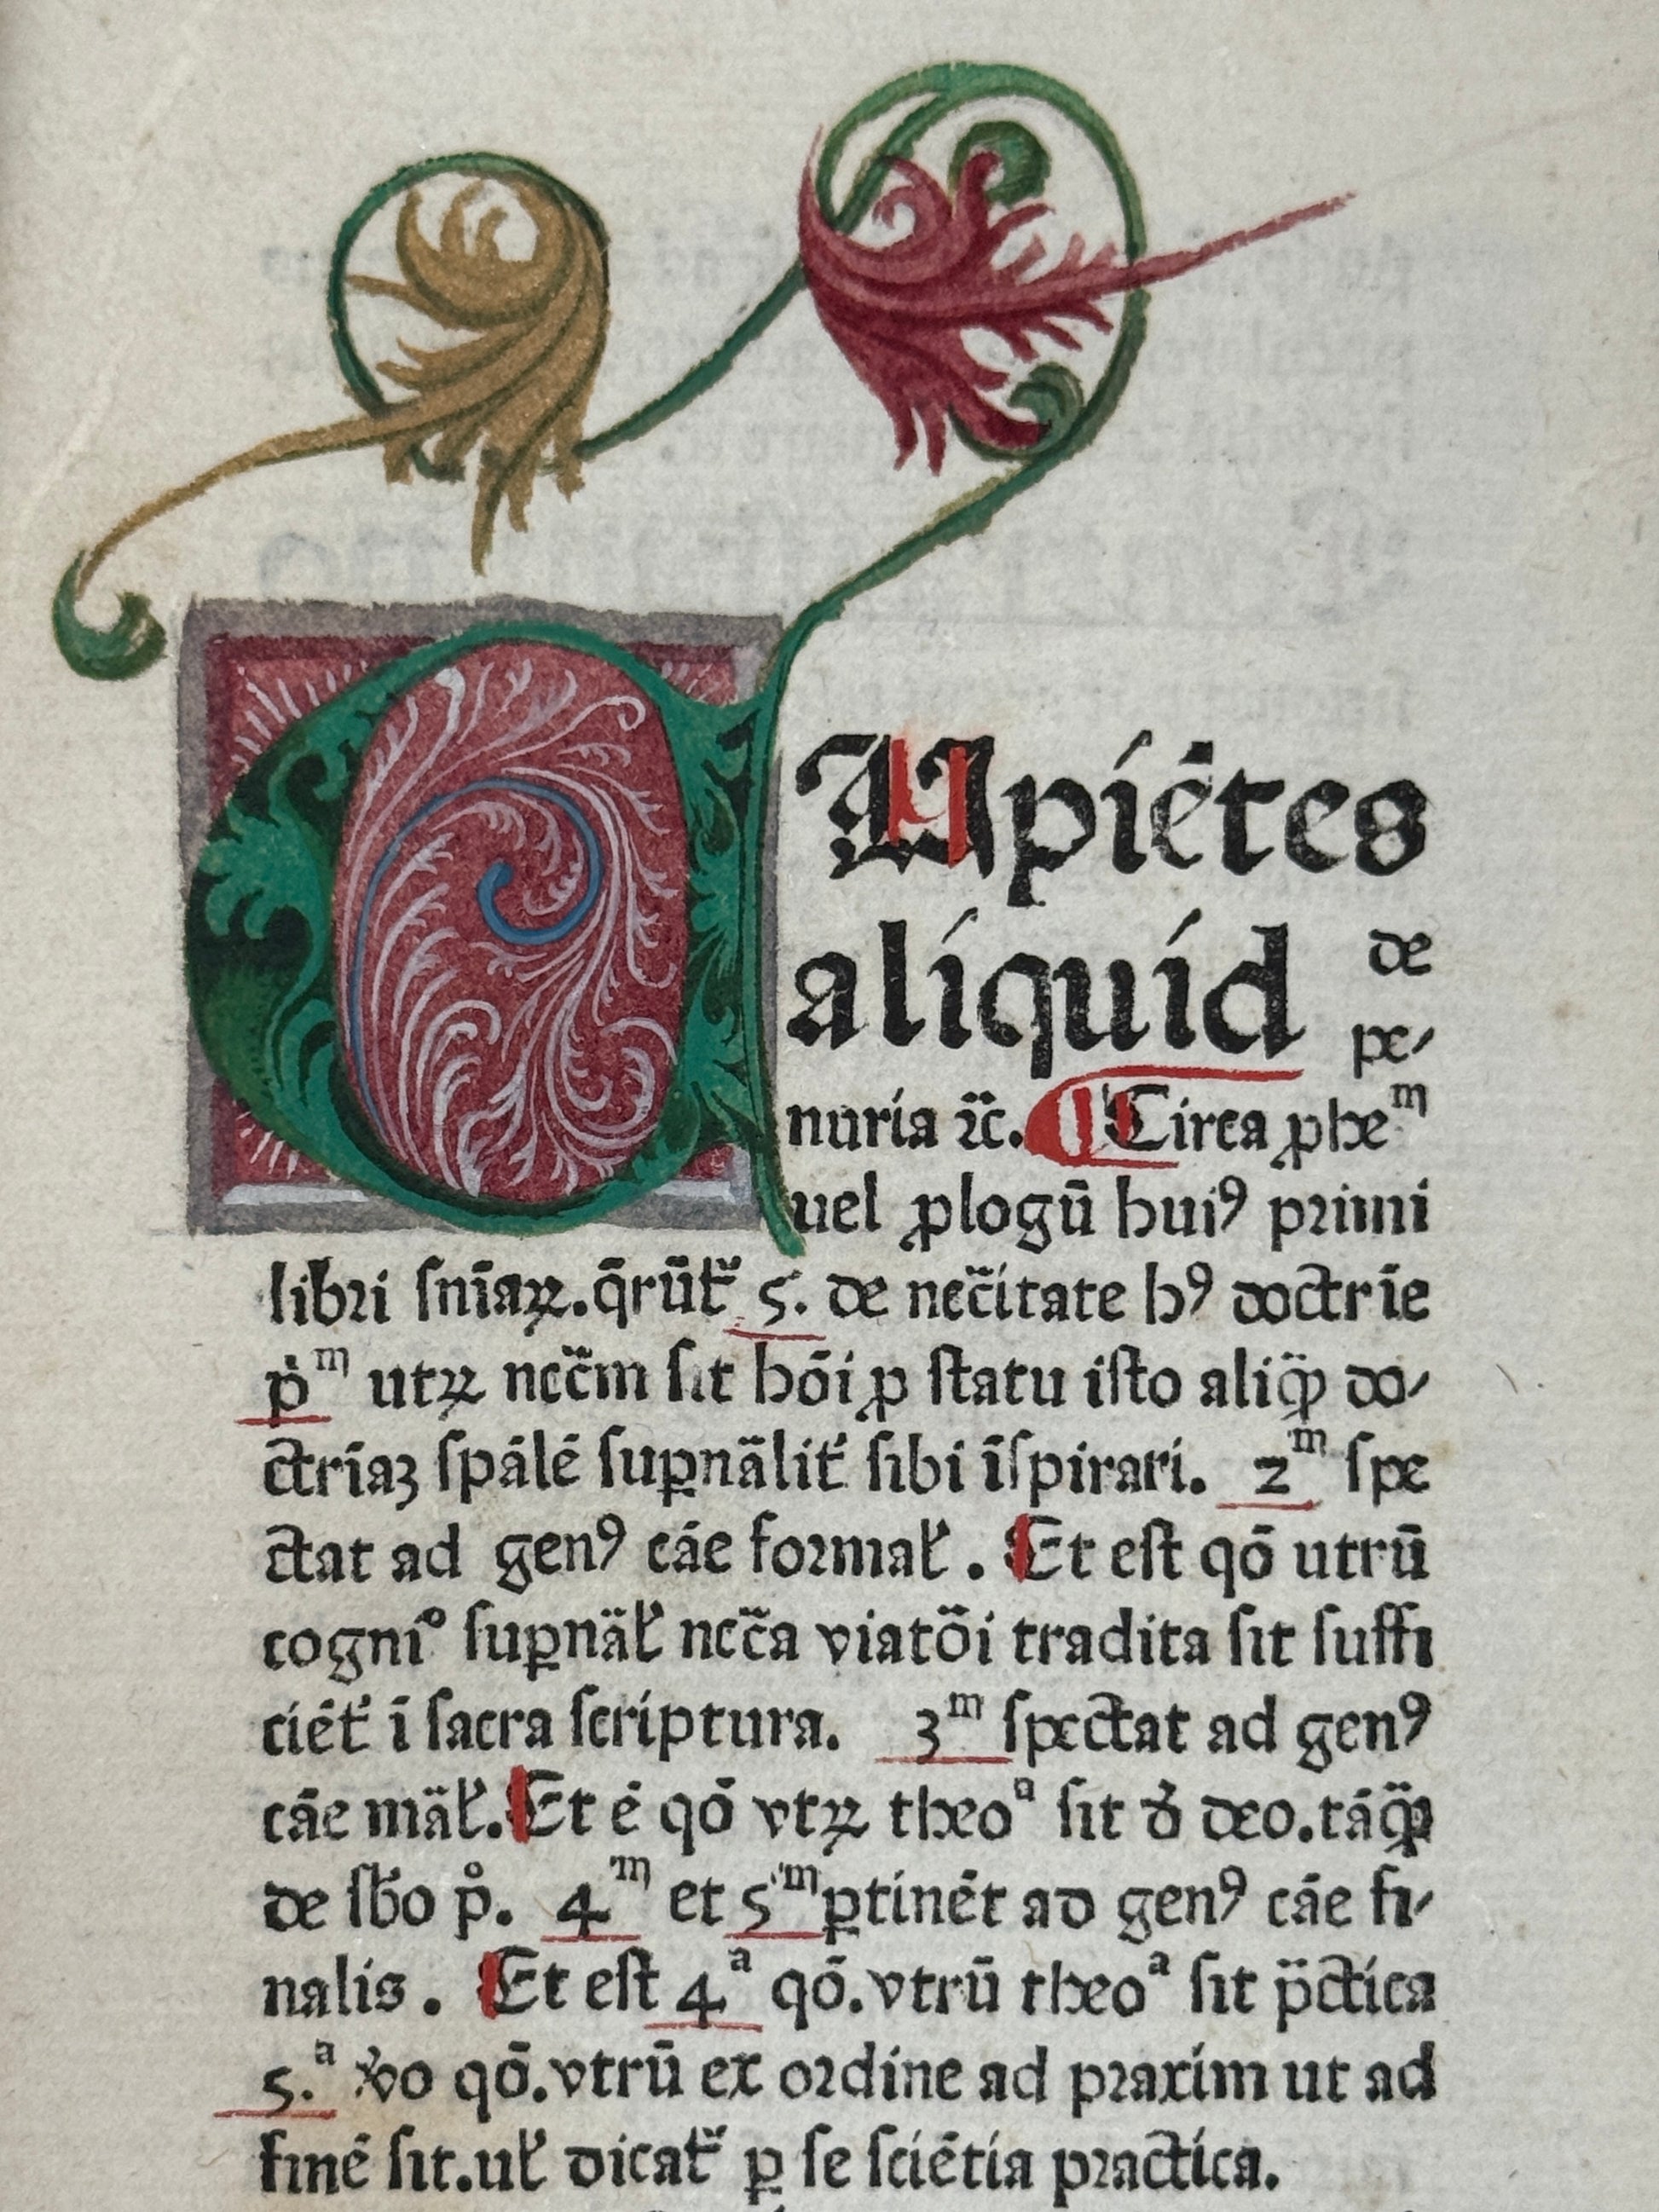 CUpiētes
aliquid de
pe⸗
nuria ⁊c̄. ¶ Circa ꝓhe^m
uel ꝓlogū huiꝰ primi
libri ſnīaꝝ. q̄rūt᷑ 5. de nec̄itate hꝰ doctrīe
p̍^m utꝝ nec̄m ſit hōi ꝓ ſtatu iſto aliq̈ꝫ do⸗
ctrīaꝫ ſpālē ſuꝑnālit᷑ ſibi īſpirari. 2^m ſpe
ctat ad genꝰ cāe formał. Et eſt qō utrū
cogni° ſuꝑnāł nec̄a viatōi tradita ſit ſuffi
ciēt᷑ ī ſacra ſcriptura. 3^m ſpectat ad genꝰ
cāe māł. Et ē qō vtꝝ theo^a ſit ð deo. tāq̈ꝫ
de ſb̄o p°. 4^m et 5^m ꝑtinēt ad genꝰ cāe fi⸗
nalis. Et eſt 4^a qō. vtrū theo^a ſit p̈ctica
5.^a v̊o qō. vtrū ex ordine ad praxim ut ad
finē ſit. uł dicat᷑ ꝑ ſe ſciētia practica.